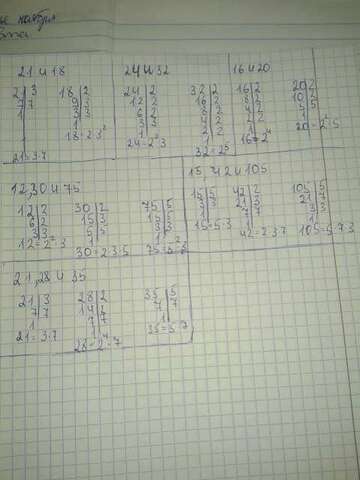 ноября
21 и 18
21|3 18|2
7|7 9|3
1| 3|3
1|
18=2·3²
21=3·7
24 и 32
24|2 32|2
12|2 16|2
6|2 8|2
3|3 4|2
1| 2|2
24=2³·3 1|
32=2⁵
16 и 20
16|2 20|2
8|2 10|2
4|2 5|5
2|2 1|
1| 20=2²·5
16=2⁴
12,30 и 75
12|2 30|2 75|5
6|2 15|3 15|5
3|3 5|5 3|3
1| 1| 1|
12=2²·3 30=2·3·5 75=5²·3
15, 42 и 105
15|5 42|2 105|5
3|3 21|3 21|7
1| 7|7 3|3
15=5·3 1| 1|
42=2·3·7 105=5·7·3
21,28 и 35
21|3 28|2 35|5
7|7 14|2 7|7
1| 7|7 1|
21=3·7 1| 35=5·7
28=2²·7